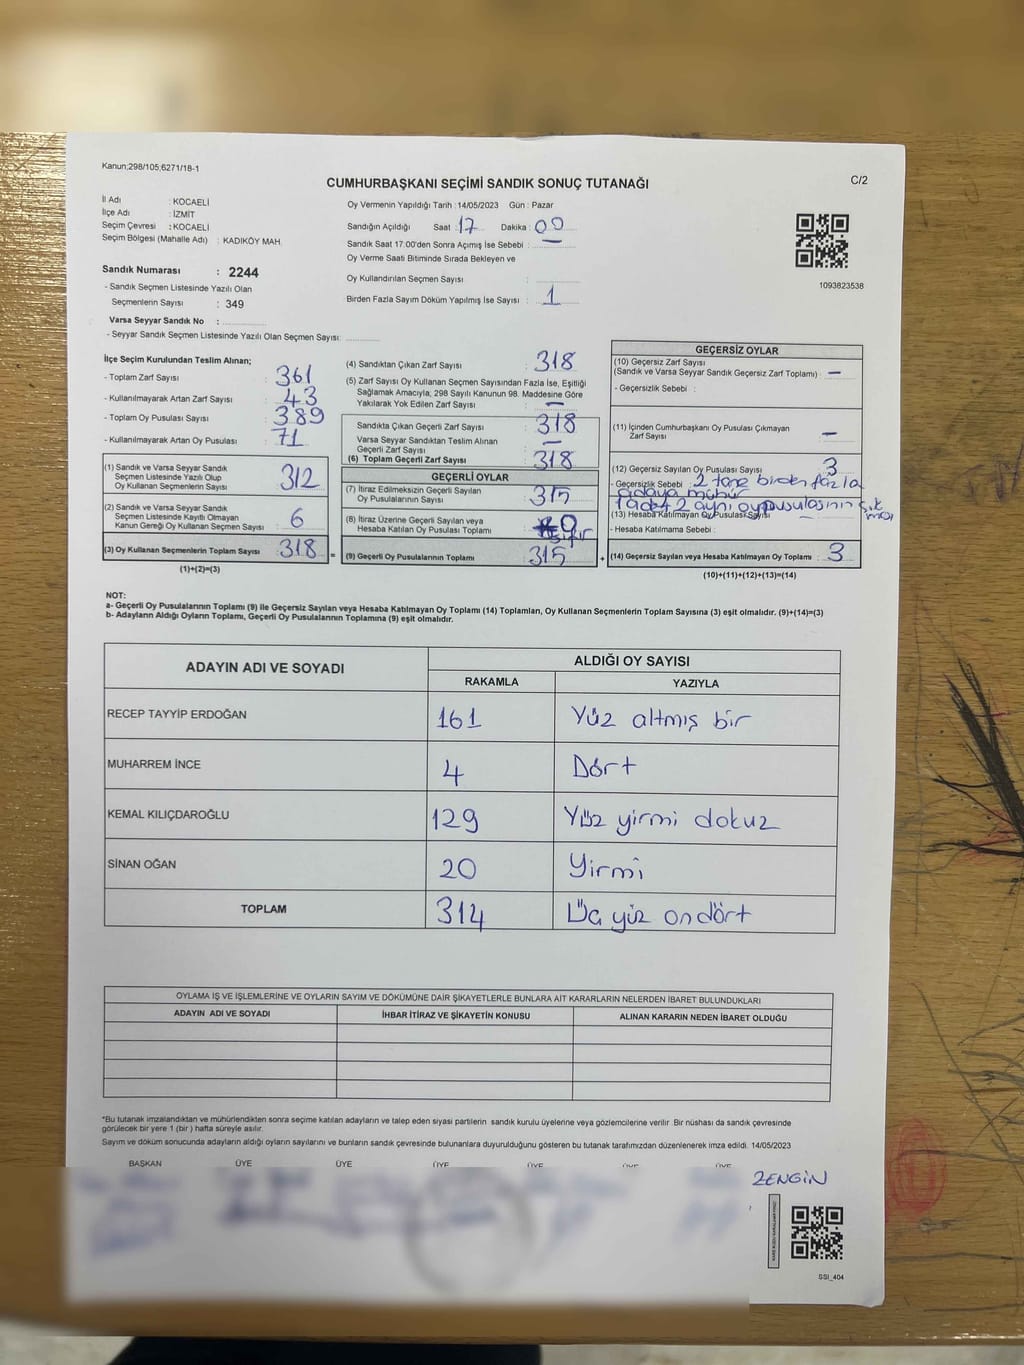 Kanun;298/105;6271/18-1
CUMHURBAŞKANI SEÇİMİ SANDIK SONUÇ TUTANAĞI
C/2
İl Adı : KOCAELİ
İlçe Adı : İZMİT
Seçim Çevresi : KOCAELİ
Seçim Bölgesi (Mahalle Adı) : KADIKÖY MAH.
Sandık Numarası : 2244
- Sandık Seçmen Listesinde Yazılı Olan
Seçmenlerin Sayısı : 349
Varsa Seyyar Sandık No :
- Seyyar Sandık Seçmen Listesinde Yazılı Olan Seçmen Sayısı:
Oy Vermenin Yapıldığı Tarih : 14/05/2023 Gün : Pazar
Sandığın Açıldığı Saat : 17 Dakika : 00
Sandık Saat 17:00'den Sonra Açımış İse Sebebi : —
Oy Verme Saati Bitiminde Sırada Bekleyen ve
Oy Kullandırılan Seçmen Sayısı :
Birden Fazla Sayım Döküm Yapılmış İse Sayısı : 1
1093823538
İlçe Seçim Kurulundan Teslim Alınan;
- Toplam Zarf Sayısı : 361
- Kullanılmayarak Artan Zarf Sayısı : 43
- Toplam Oy Pusulası Sayısı : 389
- Kullanılmayarak Artan Oy Pusulası : 71
(1) Sandık ve Varsa Seyyar Sandık
Seçmen Listesinde Yazılı Olup
Oy Kullanan Seçmenlerin Sayısı : 312
(2) Sandık ve Varsa Seyyar Sandık
Seçmen Listesinde Kayıtlı Olmayan
Kanun Gereği Oy Kullanan Seçmen Sayısı : 6
(3) Oy Kullanan Seçmenlerin Toplam Sayısı : 318
(1)+(2)=(3)
(4) Sandıktan Çıkan Zarf Sayısı : 318
(5) Zarf Sayısı Oy Kullanan Seçmen Sayısından Fazla İse, Eşitliği
Sağlamak Amacıyla; 298 Sayılı Kanunun 98. Maddesine Göre
Yakılarak Yok Edilen Zarf Sayısı : —
Sandıkta Çıkan Geçerli Zarf Sayısı : 318
Varsa Seyyar Sandıktan Teslim Alınan
Geçerli Zarf Sayısı : —
(6) Toplam Geçerli Zarf Sayısı : 318
GEÇERLİ OYLAR
(7) İtiraz Edilmeksizin Geçerli Sayılan
Oy Pusulalarının Sayısı : 315
(8) İtiraz Üzerine Geçerli Sayılan veya
Hesaba Katılan Oy Pusulası Toplamı : 0
sıfır
= (9) Geçerli Oy Pusulalarının Toplamı : 315
GEÇERSİZ OYLAR
(10) Geçersiz Zarf Sayısı
(Sandık ve Varsa Seyyar Sandık Geçersiz Zarf Toplamı) : —
- Geçersizlik Sebebi :
(11) İçinden Cumhurbaşkanı Oy Pusulası Çıkmayan
Zarf Sayısı : —
(12) Geçersiz Sayılan Oy Pusulası Sayısı : 3
- Geçersizlik Sebebi : 2 tane birden fazla
adaya mühür
1 adet 2 ayrı oy pusulasının çıkması
(13) Hesaba Katılmayan Oy Pusulası Sayısı : —
- Hesaba Katılmama Sebebi :
+ (14) Geçersiz Sayılan veya Hesaba Katılmayan Oy Toplamı : 3
(10)+(11)+(12)+(13)=(14)
NOT:
a- Geçerli Oy Pusulalarının Toplamı (9) ile Geçersiz Sayılan veya Hesaba Katılmayan Oy Toplamı (14) Toplamları, Oy Kullanan Seçmenlerin Toplam Sayısına (3) eşit olmalıdır. (9)+(14)=(3)
b- Adayların Aldığı Oyların Toplamı, Geçerli Oy Pusulalarının Toplamına (9) eşit olmalıdır.
ADAYIN ADI VE SOYADI ALDIĞI OY SAYISI
RAKAMLA YAZIYLA
RECEP TAYYİP ERDOĞAN 161 Yüz altmış bir
MUHARREM İNCE 4 Dört
KEMAL KILIÇDAROĞLU 129 Yüz yirmi dokuz
SİNAN OĞAN 20 Yirmi
TOPLAM 314 Üç yüz on dört
OYLAMA İŞ VE İŞLEMLERİNE VE OYLARIN SAYIM VE DÖKÜMÜNE DAİR ŞİKAYETLERLE BUNLARA AİT KARARLARIN NELERDEN İBARET BULUNDUKLARI
ADAYIN ADI VE SOYADI İHBAR İTİRAZ VE ŞİKAYETİN KONUSU ALINAN KARARIN NEDEN İBARET OLDUĞU
*Bu tutanak imzalandıktan ve mühürlendikten sonra seçime katılan adayların ve talep eden siyasi partilerin sandık kurulu üyelerine veya gözlemcilerine verilir. Bir nüshası da sandık çevresinde
görülecek bir yere 1 (bir ) hafta süreyle asılır.
Sayım ve döküm sonucunda adayların aldığı oyların sayılarını ve bunların sandık çevresinde bulunanlara duyurulduğunu gösteren bu tutanak tarafımızdan düzenlenerek imza edildi. 14/05/2023
BAŞKAN ÜYE ÜYE ÜYE ÜYE ÜYE ÜYE
ZENGİN
SSI_404